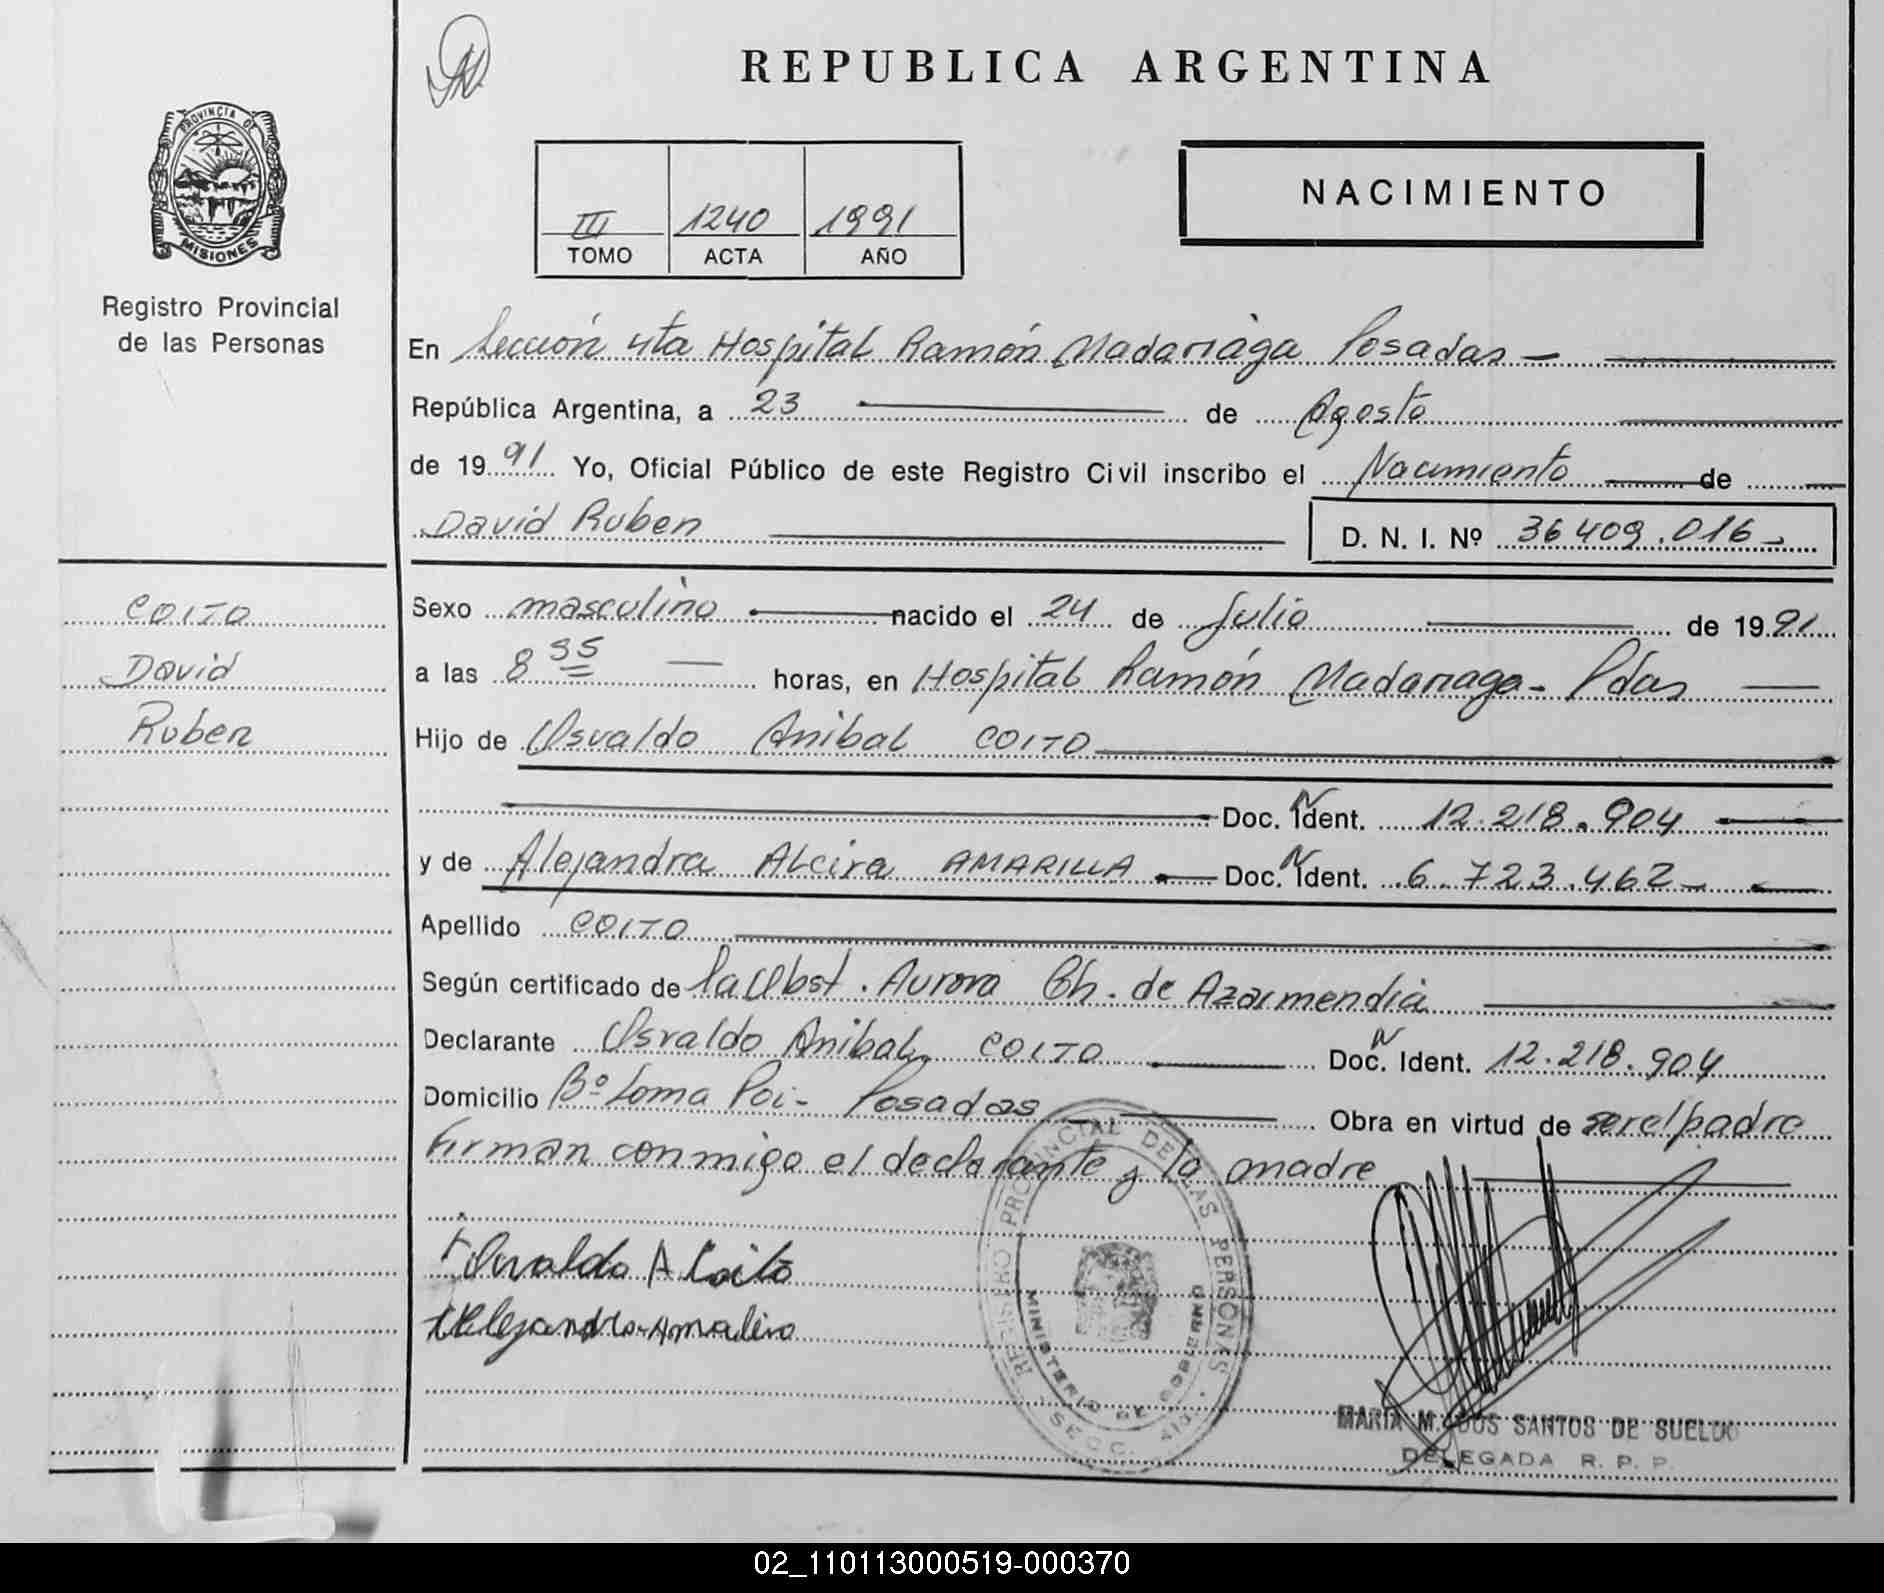 REPUBLICA ARGENTINA
PROVINCIA DE
MISIONES
Registro Provincial
de las Personas
III 1240 1991
TOMO ACTA AÑO
NACIMIENTO
En Sección 4ta Hospital Ramón Madariaga Posadas
República Argentina, a 23 de Agosto
de 1991 Yo, Oficial Público de este Registro Civil inscribo el Nacimiento de
David Ruben D. N. I. Nº 36409.016
COITO
David
Ruben
Sexo masculino nacido el 24 de Julio de 1991
a las 8 35 horas, en Hospital Ramón Madariaga - Pdas
Hijo de Osvaldo Anibal COITO
Doc. N Ident. 12.218.904
y de Alejandra Alcira AMARILLA Doc. N Ident. 6.723.462
Apellido COITO
Según certificado de la Obst. Aurora Ch. de Azarmendia
Declarante Osvaldo Anibal COITO Doc. N Ident. 12.218.904
Domicilio Bº Loma Poi - Posadas Obra en virtud de ser el padre
Firman conmigo el declarante y la madre
Osvaldo A Coito
REGISTRO PROVINCIAL DE LAS PERSONAS
MINISTERIO DE GOBIERNO
SECC. 4ta.
MARIA M. DOS SANTOS DE SUELDO
DELEGADA R. P. P.
02_110113000519-000370